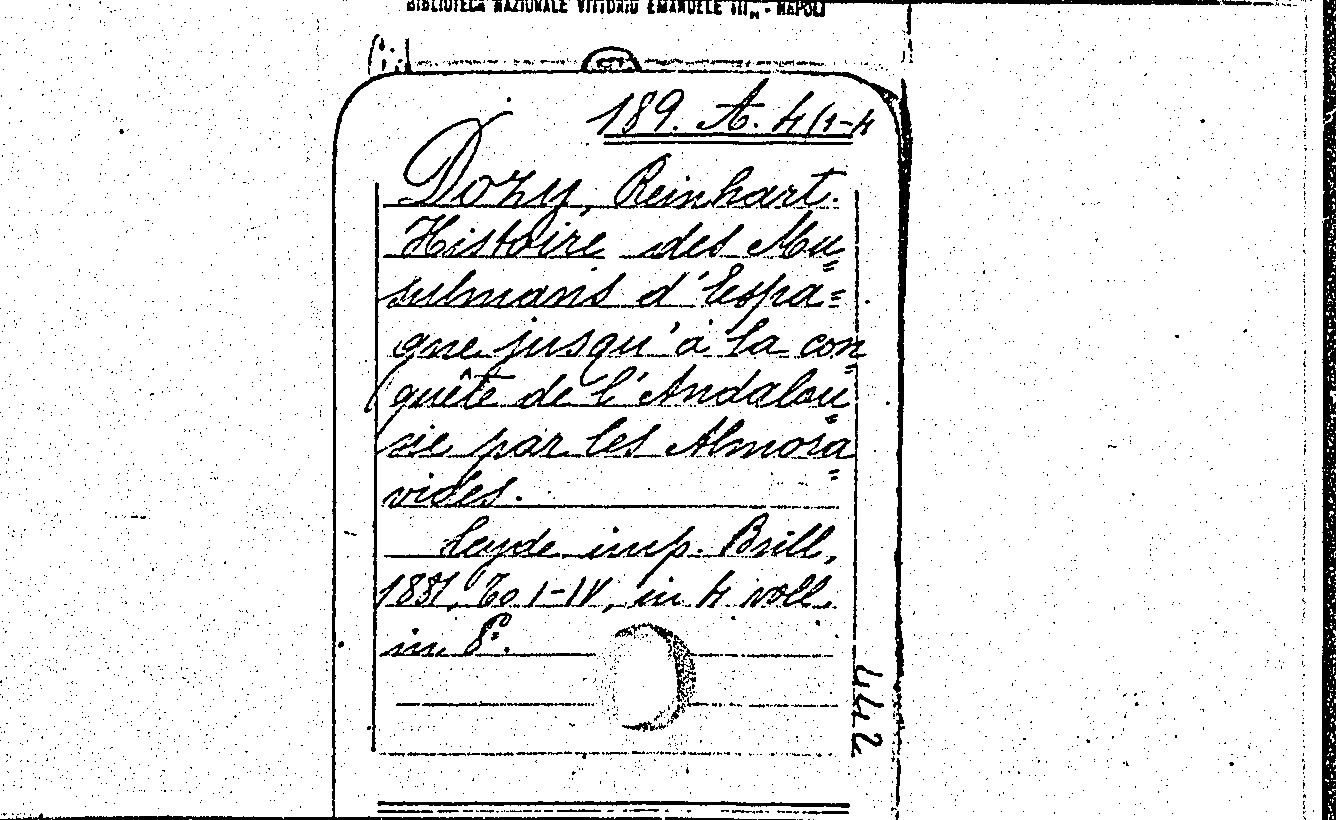 BIBLIOTECA NAZIONALE VITTORIO EMANUELE III - NAPOLI
189. A. 4 (1-4
Dozy, Reinhart.
Histoire des Mu=
sulmans d'Espa=
gne jusqu'à la con=
quête de l'Andalou=
sie par les Almora=
vides.
Leyde imp. Brill,
1881, To I-IV, in 4 voll.
in 8°.
442